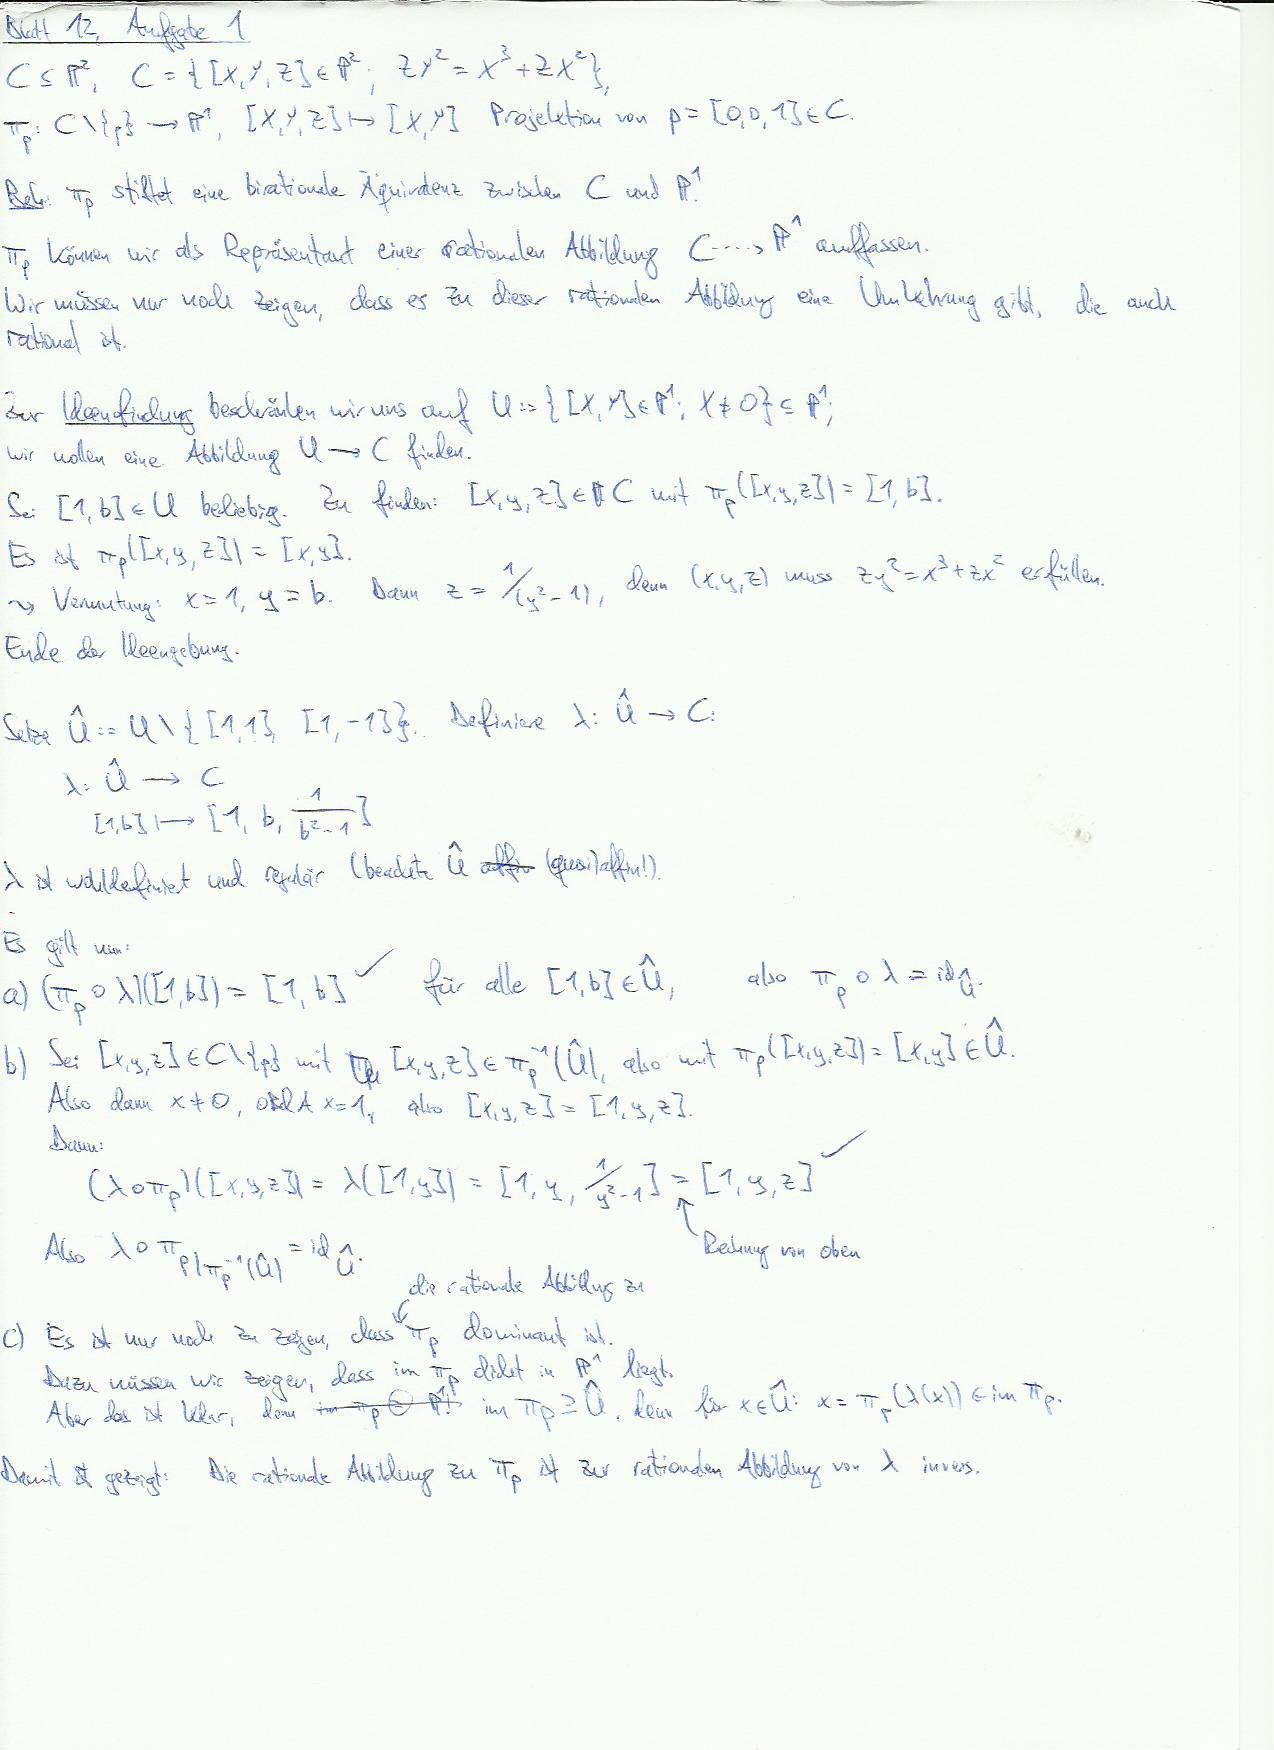 Blatt 12, Aufgabe 1
C ⊆ ℙ², C = {[X,Y,Z] ∈ ℙ²; ZY² = X³ + ZX²},
π_p: C\{p} → ℙ¹, [X,Y,Z] ↦ [X,Y] Projektion von p = [0,0,1] ∈ C.
Beh: π_p stiftet eine birationale Äquivalenz zwischen C und ℙ¹.
π_p können wir als Repräsentant einer rationalen Abbildung C ····> ℙ¹ auffassen.
Wir müssen nur noch zeigen, dass es zu dieser rationalen Abbildung eine Umkehrung gibt, die auch
rational ist.
Zur Ideenfindung beschränken wir uns auf U := {[X,Y] ∈ ℙ¹; X ≠ 0} ⊆ ℙ¹;
wir wollen eine Abbildung U → C finden.
Sei [1,b] ∈ U beliebig. Zu finden: [x,y,z] ∈ C mit π_p([x,y,z]) = [1,b].
Es ist π_p([x,y,z]) = [x,y].
⇝ Vermutung: x = 1, y = b. Dann z = 1/(y²-1), denn (x,y,z) muss zy² = x³ + zx² erfüllen.
Ende der Ideengebung.
Setze Û := U \ {[1,1], [1,-1]}. Definiere λ: Û → C:
λ: Û → C
[1,b] ↦ [1, b, 1/(b²-1)]
λ ist wohldefiniert und regulär (beachte Û (quasi)affin!).
Es gilt nun:
a) (π_p ∘ λ)([1,b]) = [1,b] ✓ für alle [1,b] ∈ Û, also π_p ∘ λ = id_Û.
b) Sei [x,y,z] ∈ C\{p} mit [x,y,z] ∈ π_p⁻¹(Û), also mit π_p([x,y,z]) = [x,y] ∈ Û.
Also dann x ≠ 0, OBdA x = 1, also [x,y,z] = [1,y,z].
Dann:
(λ∘π_p)([x,y,z]) = λ([1,y]) = [1, y, 1/y²-1] = [1,y,z] ✓
Rechnung von oben
Also λ ∘ π_p|π_p⁻¹(Û) = id_Û.
die rationale Abbildung zu
c) Es ist nur noch zu zeigen, dass π_p dominant ist.
Dazu müssen wir zeigen, dass im π_p dicht in ℙ¹ liegt.
Aber das ist klar, denn im π_p ⊇ Û, denn für x ∈ Û: x = π_p(λ(x)) ∈ im π_p.
Damit ist gezeigt: Die rationale Abbildung zu π_p ist zur rationalen Abbildung von λ invers.